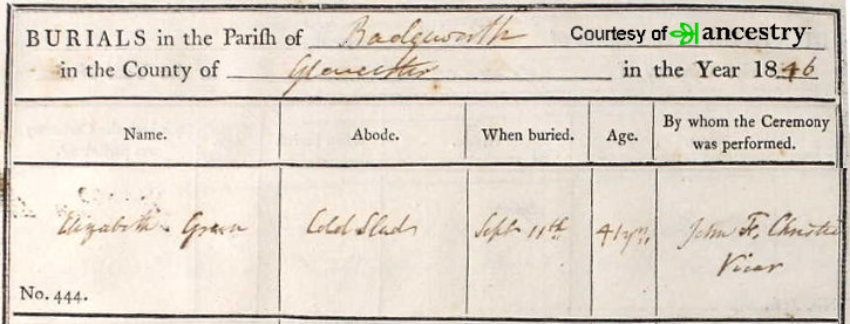 BURIALS in the Parish of Badgeworth Courtesy of ancestry
in the County of Gloucester in the Year 1846
Name. Abode. When buried. Age. By whom the Ceremony was performed.
Elizabeth Green Cold Slad Sept 11th 41 yrs John F. Christie
Vicar
No. 444.